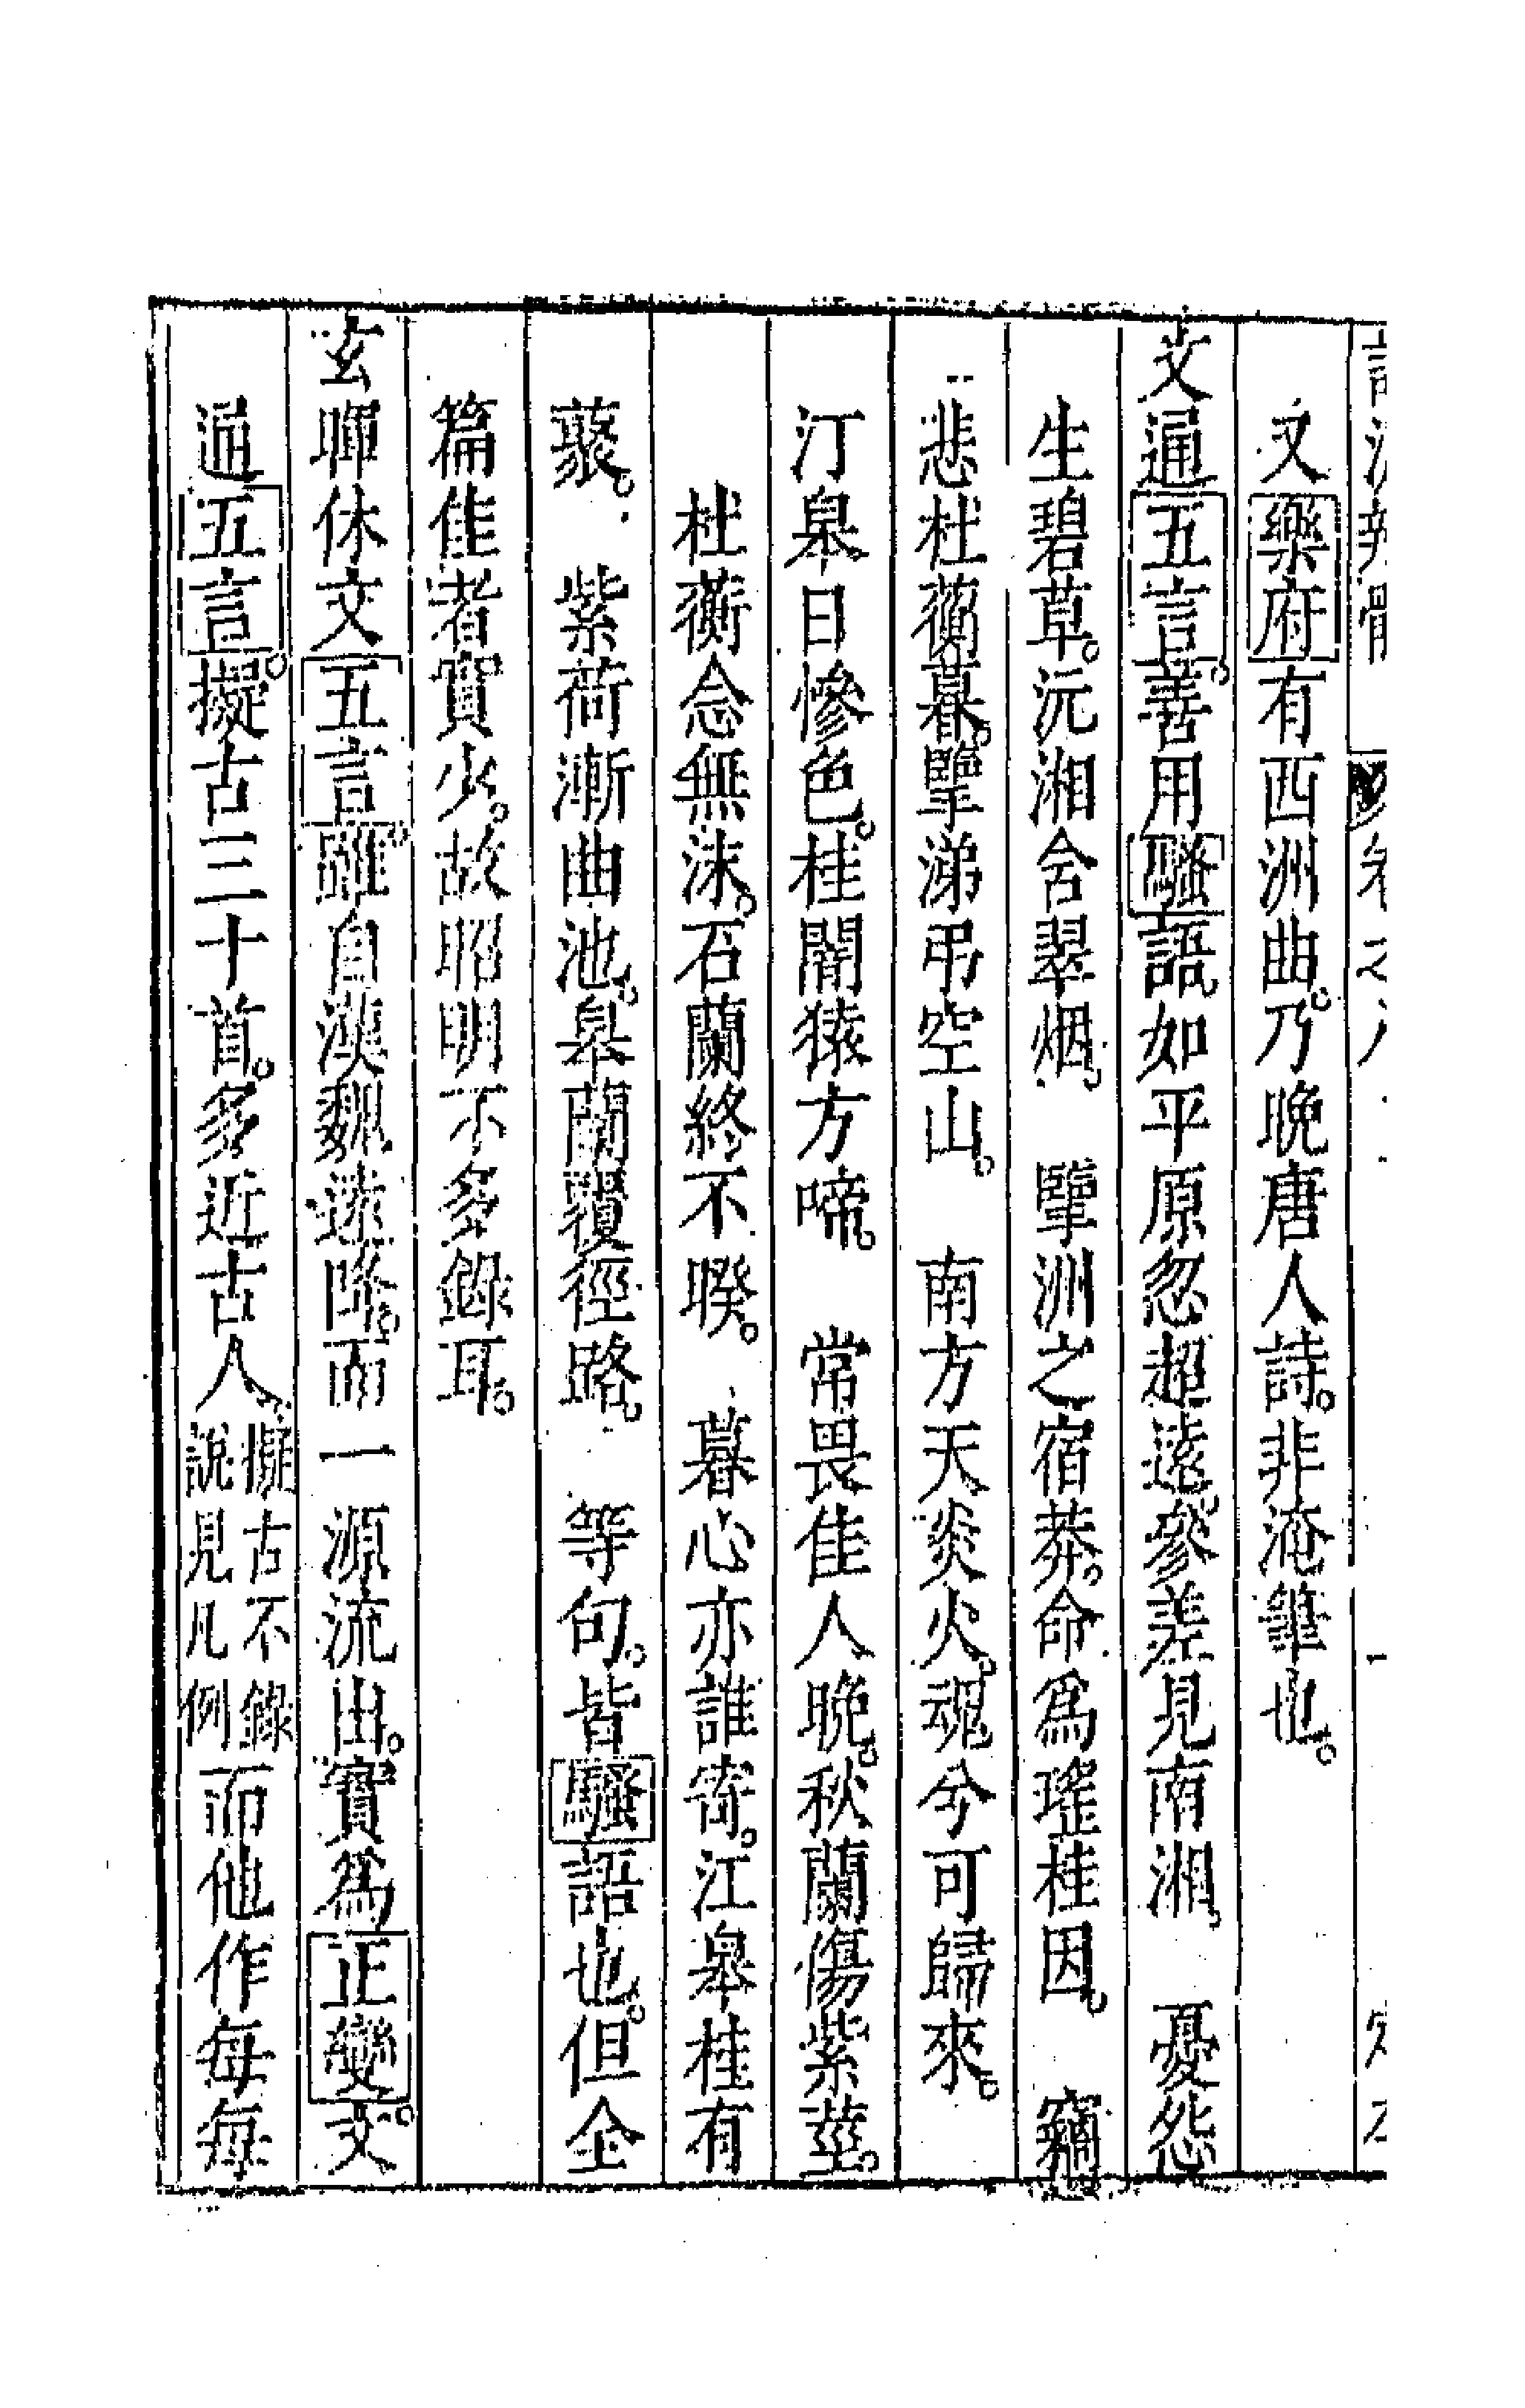 又樂府有西洲曲。乃晚唐人詩。非淹筆也。
文通五言。善用騷語。如平原忽超遠。參差見南湘。　憂怨
生碧草。沅湘含翠烟。　擥洲之宿莽。命爲瑤桂因。　竊
悲杜蘅暮。擥涕弔空山。　南方天炎火。魂兮可歸來。
汀皋日慘色。桂闇猿方啼。　常畏佳人晚。秋蘭傷紫莖。
杜蘅念無沫。石蘭終不暌。　暮心亦誰寄。江皋桂有
藂。　紫荷漸曲池。皋蘭覆徑路。　等句。皆騷語也。但全
篇佳者實少。故昭明不多錄耳。
玄暉休文五言。雖自漢魏遠降。而一源流出。實爲正變。文
通五言。擬古三十首。多近古人。擬古不錄說見凡例而他作每每